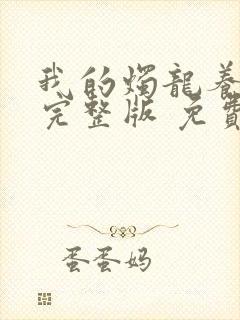 我的燭龍養
完整版 免費
蛋蛋妈